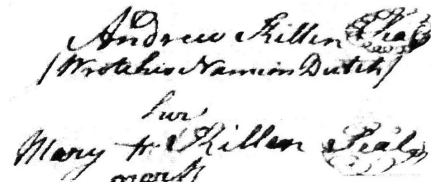 Andrew Killen Seal
(Wrote his Name in Dutch)
her
Mary + Killen Seal
mark